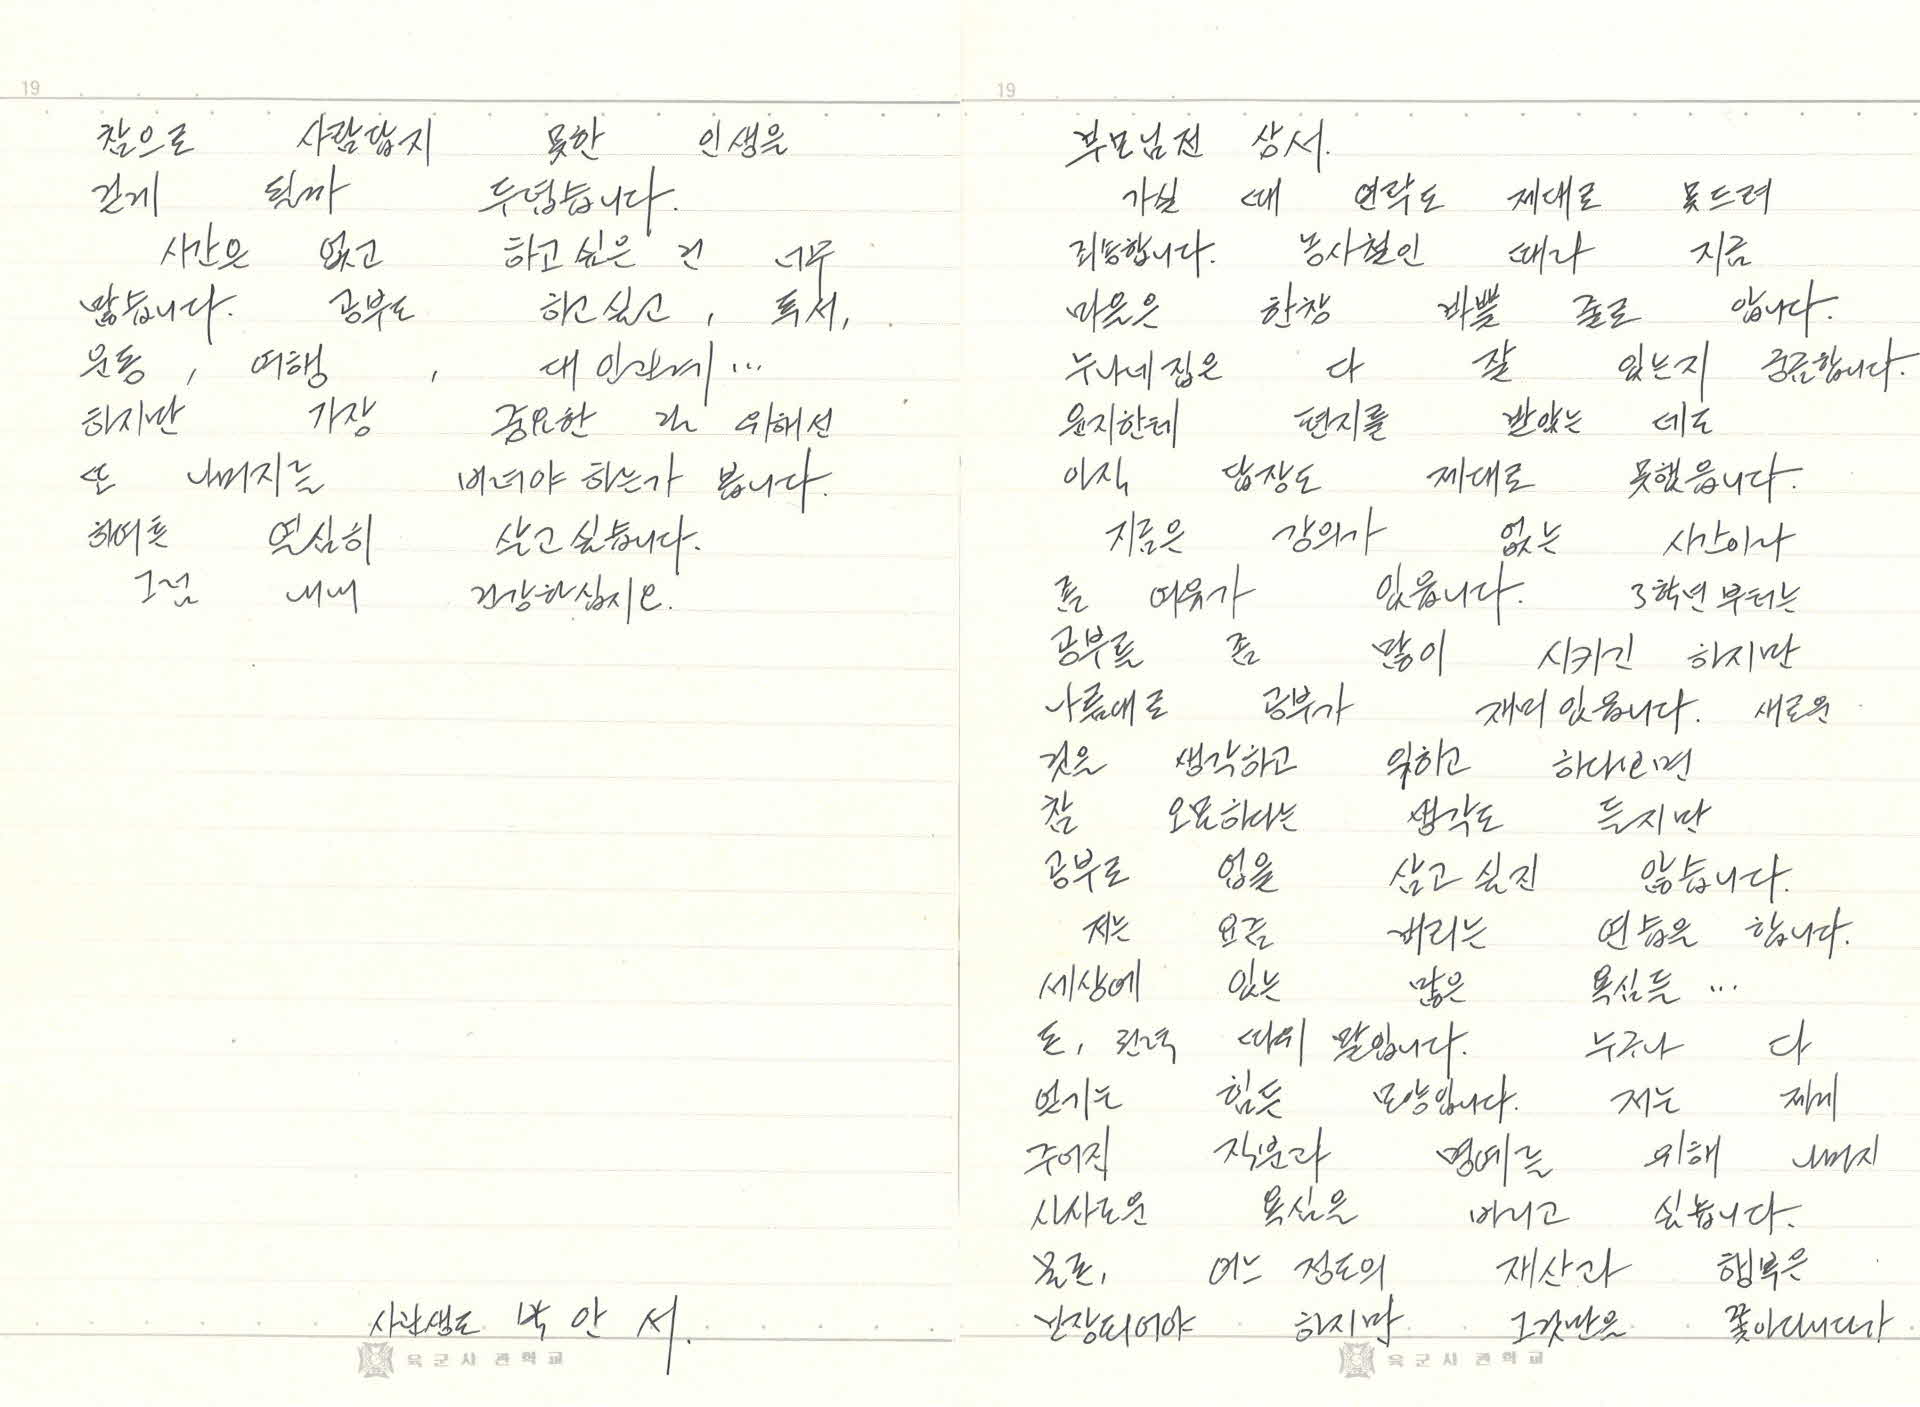 19
부모님전 상서.
가실 때 연락도 제대로 못드려
죄송합니다. 농사철인 때라 지금
마을은 한창 바쁠 줄로 압니다.
누나네집은 다 잘 있는지 궁금합니다.
윤지한테 편지를 받았는데도
아직 답장도 제대로 못했읍니다.
지금은 강의가 없는 시간이라
좀 여유가 있읍니다. 3학년부터는
공부를 좀 많이 시키긴 하지만
나름대로 공부가 재미있읍니다. 새로운
것을 생각하고 하다보면
참 오묘하다는 생각도 들지만
공부로 업을 삼고 싶진 않습니다.
저는 요즘 버리는 연습을 합니다.
세상에 있는 많은 욕심들 ...
돈, 권력 따위 말입니다. 누구나 다
얻기는 힘든 모양입니다. 저는 제게
주어진 직분과 명예를 위해 나머지
사사로운 욕심은 버리고 싶습니다.
물론, 어느 정도의 재산과 행복은
보장되어야 하지만 그것만을 쫓아다니다가
육군사관학교
19
참으로 사람답지 못한 인생을
걷게 될까 두렵습니다.
시간은 없고 하고싶은 건 너무
많습니다. 공부도 하고싶고, 독서,
운동, 여행, 대인관계...
하지만 가장 중요한 걸 위해선
또 나머지를 버려야 하는가 봅니다.
하여튼 열심히 살고싶습니다.
그럼 내내 건강하십시요.
사관생도 박 안 서.
육군사관학교